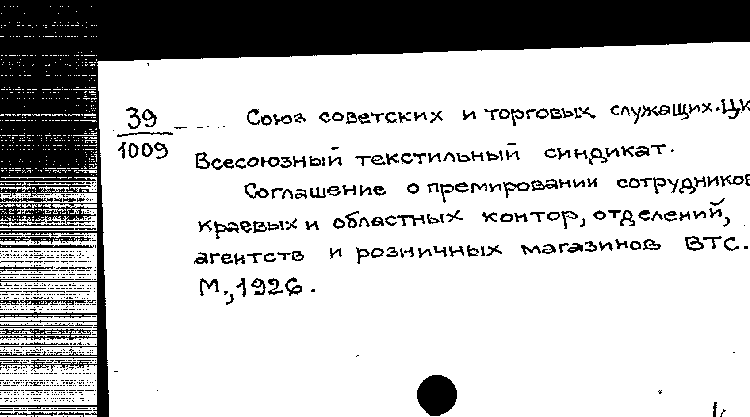 39 Союз советских и торговых служащих. ЦК
1009
Всесоюзный текстильный синдикат.
Соглашение о премировании сотрудников
краевых и областных контор, отделений,
агентств и розничных магазинов ВТС.
М., 1926.